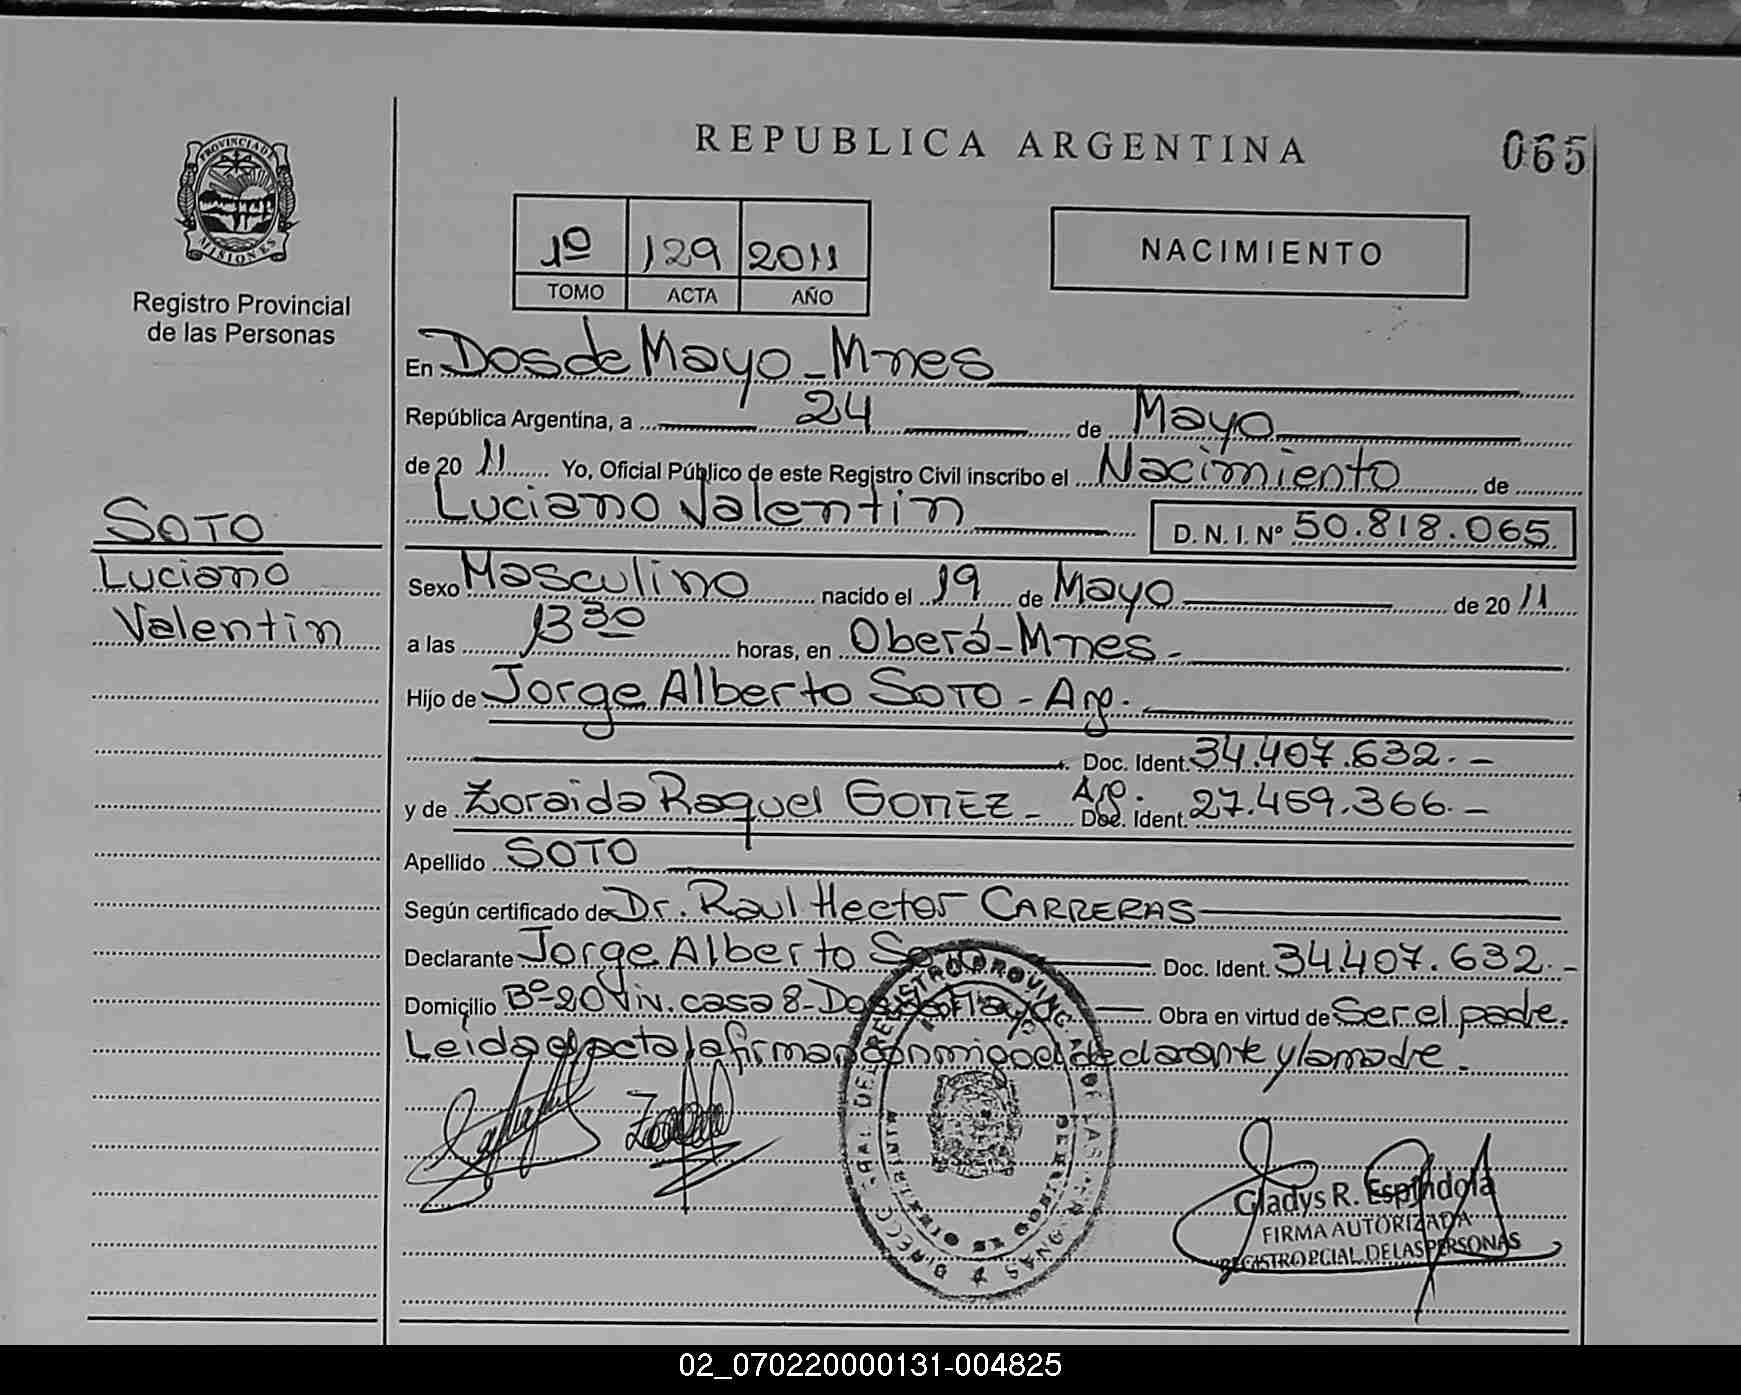 REPUBLICA ARGENTINA
065
PROVINCIA DE MISIONES
Registro Provincial
de las Personas
1º 129 2011
TOMO ACTA AÑO
NACIMIENTO
SOTO
Luciano
Valentin
En Dos de Mayo - Mnes
República Argentina, a 24 de Mayo
de 2011 Yo, Oficial Público de este Registro Civil inscribo el Nacimiento de
Luciano Valentin D. N. I. Nº 50.818.065
Sexo Masculino nacido el 19 de Mayo de 2011
a las 13 30 horas, en Oberá - Mnes -
Hijo de Jorge Alberto SOTO - Arg.
Doc. Ident. 34.407.632. -
y de Zoraida Raquel GOMEZ - Arg. Doc. Ident. 27.459.366. -
Apellido SOTO
Según certificado de Dr. Raul Hector CARRERAS
Declarante Jorge Alberto Soto Doc. Ident. 34.407.632. -
Domicilio Bº 20 Viv. casa 8 - Dos de Mayo Obra en virtud de Ser el padre.
Leída el acta la firman conmigo el declarante y la madre.
Gladys R. Espindola
FIRMA AUTORIZADA
REGISTRO PCIAL. DE LAS PERSONAS
02_070220000131-004825